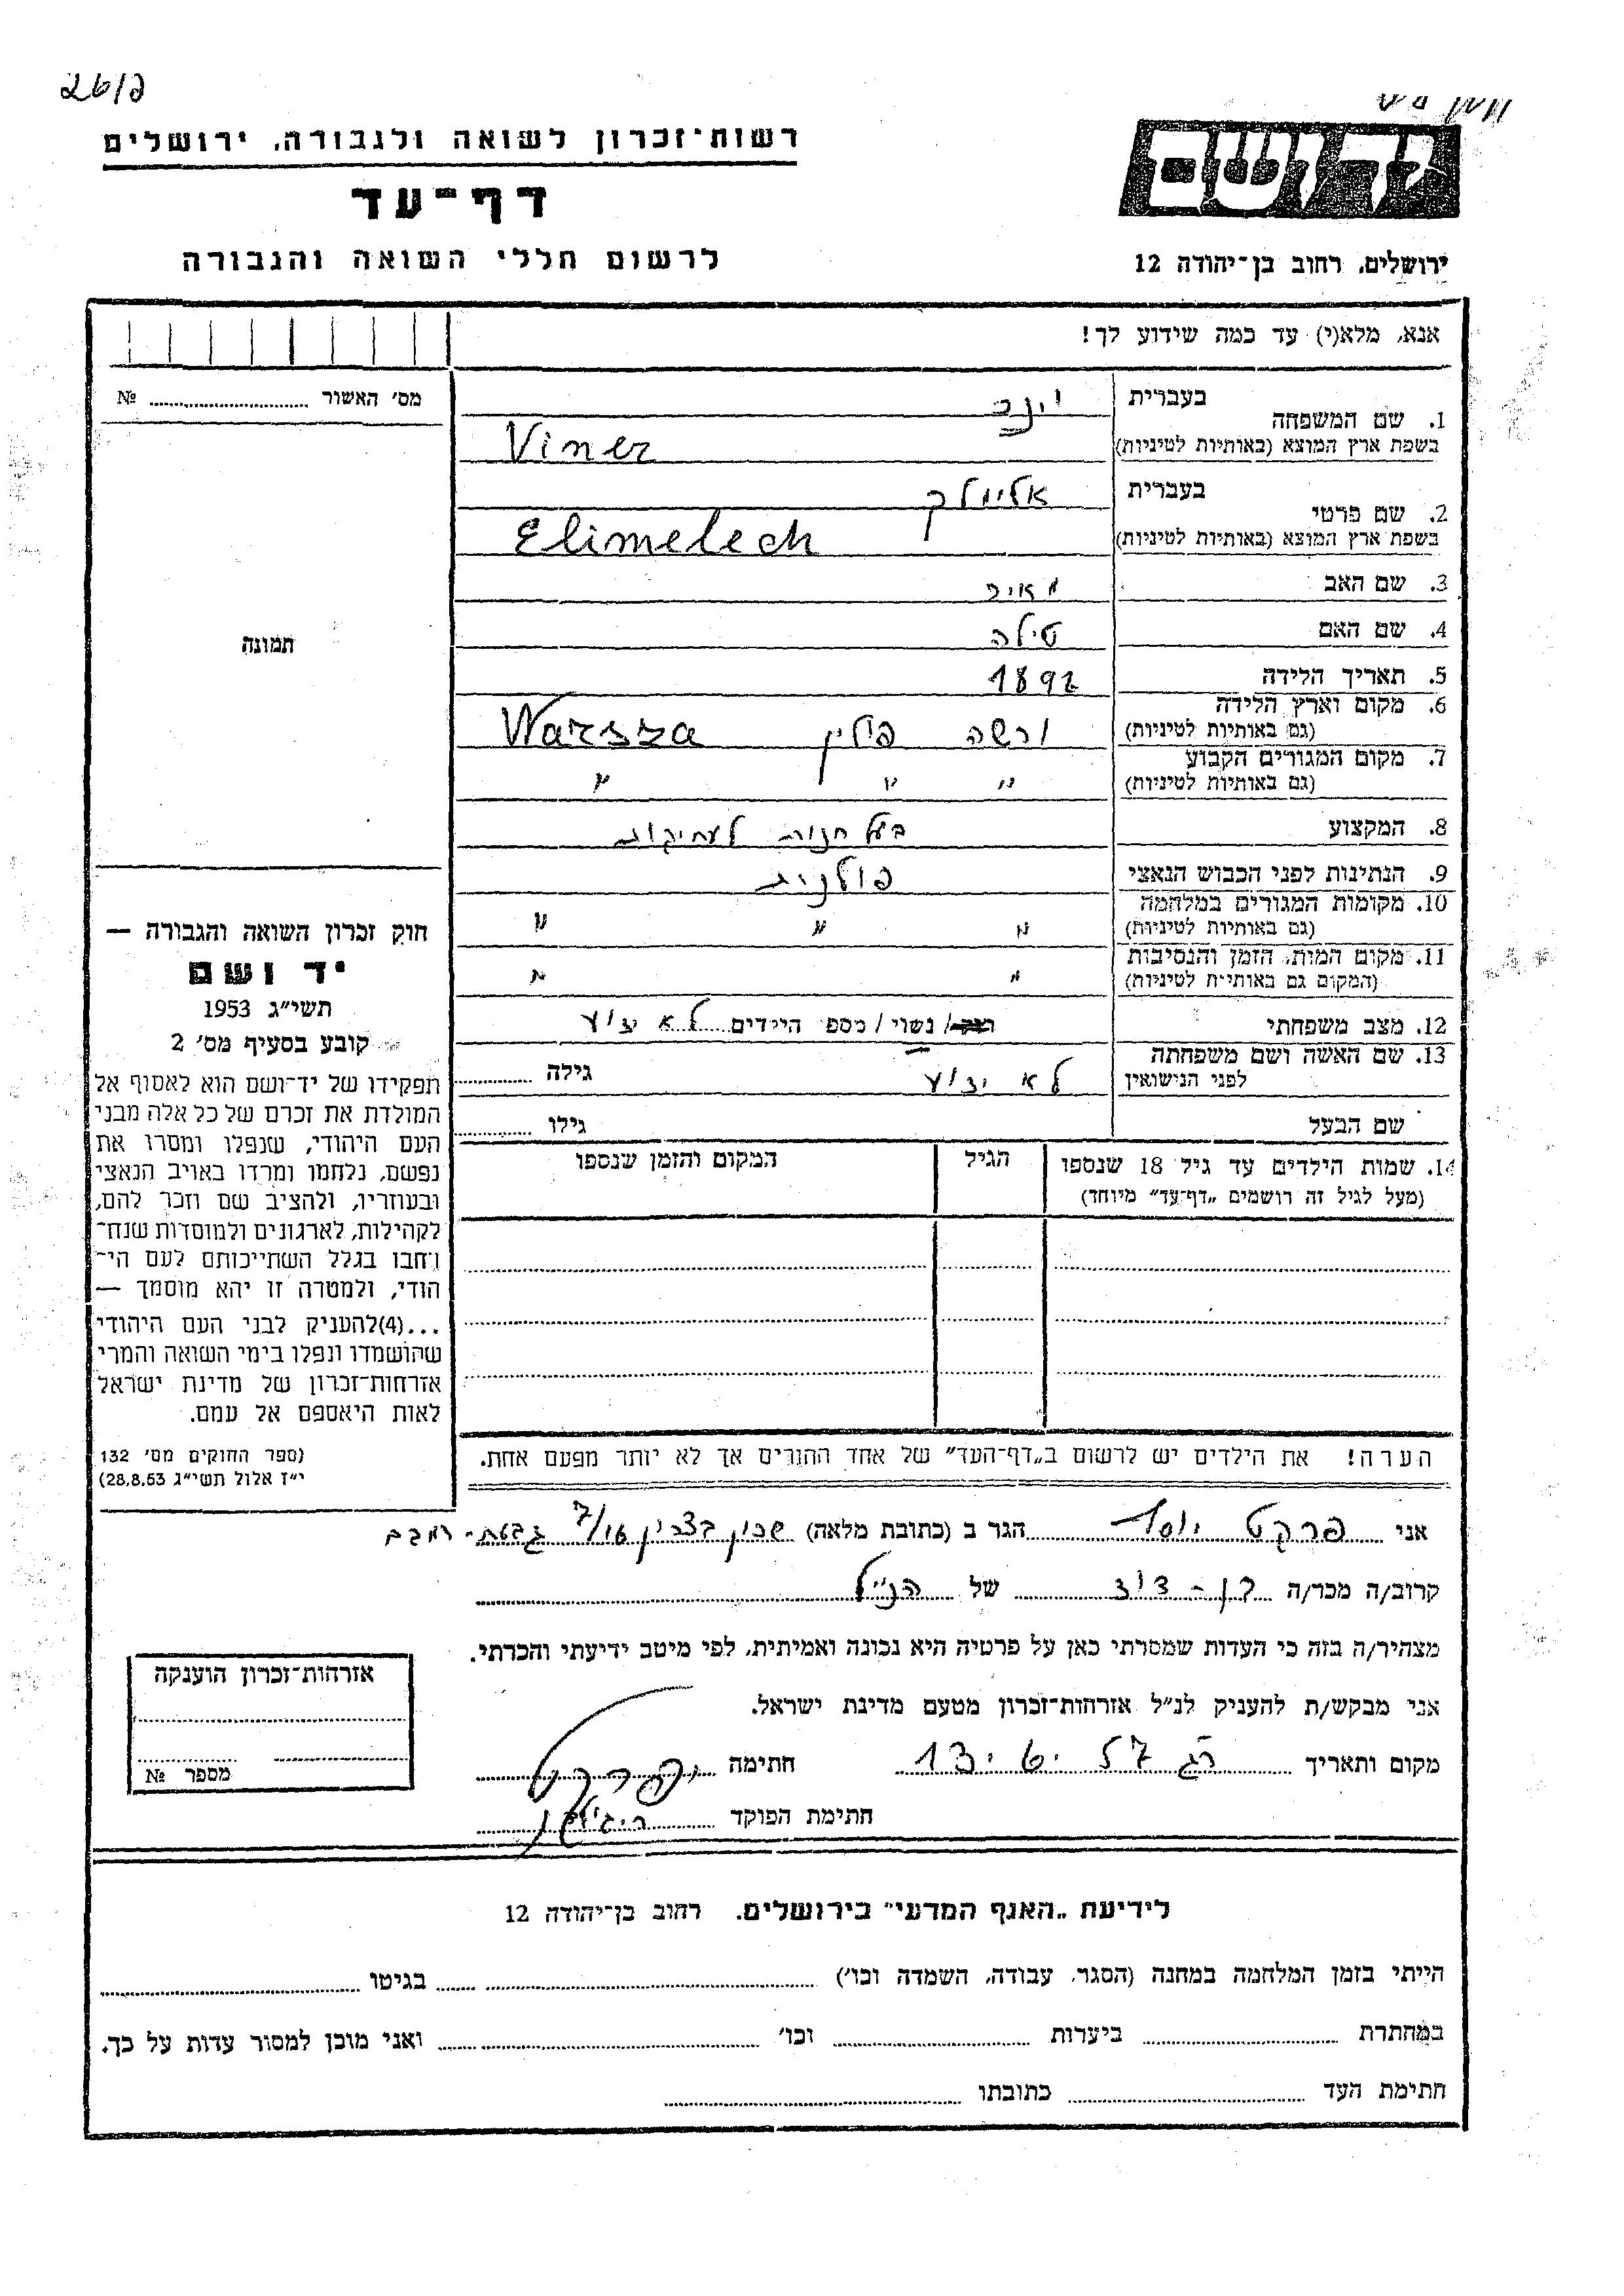 26/פ
רשות־זכרון לשואה ולגבורה, ירושלים
דף־עד
לרשום חללי השואה והגבורה
יד ושם
ירושלים, רחוב בן־יהודה 12
אנא, מלא(י) עד כמה שידוע לך!
מס׳ האשור №
תמונה
1. שם המשפחה בעברית וינר
בשפת ארץ המוצא (באותיות לטיניות) Viner
2. שם פרטי בעברית אלימלך
בשפת ארץ המוצא (באותיות לטיניות) Elimelech
3. שם האב מאיר
4. שם האם טילה
5. תאריך הלידה 1892
6. מקום וארץ הלידה (גם באותיות לטיניות) ורשה פולין Warsza
7. מקום המגורים הקבוע (גם באותיות לטיניות) " " "
8. המקצוע בעל חנות לעתיקות
9. הנתינות לפני הכבוש הנאצי פולנית
10. מקומות המגורים במלחמה (גם באותיות לטיניות) " " "
11. מקום המות, הזמן והנסיבות (המקום גם באותיות לטיניות) " "
12. מצב משפחתי רוק/ נשוי/ מספר הילדים לא ידוע
13. שם האשה ושם משפחתה לפני הנישואין לא ידוע גילה
שם הבעל גילו
14. שמות הילדים עד גיל 18 שנספו הגיל המקום והזמן שנספו
(מעל לגיל זה רושמים „דף־עד״ מיוחד)
חוק זכרון השואה והגבורה —
יד ושם
תשי״ג 1953
קובע בסעיף מס׳ 2
תפקידו של יד־ושם הוא לאסוף אל
המולדת את זכרם של כל אלה מבני
העם היהודי, שנפלו ומסרו את
נפשם, נלחמו ומרדו באויב הנאצי
ובעוזריו, ולהציב שם וזכר להם,
לקהילות, לארגונים ולמוסדות שנח־
רבו בגלל השתייכותם לעם הי־
הודי, ולמטרה זו יהא מוסמך —
...(4)להעניק לבני העם היהודי
שהושמדו ונפלו בימי השואה והמרי
אזרחות־זכרון של מדינת ישראל
לאות היאספם אל עמם.
(ספר החוקים מס׳ 132
י״ז אלול תשי״ג 28.8.53)
הערה! את הילדים יש לרשום ב„דף־העד״ של אחד ההורים אך לא יותר מפעם אחת.
אני פרקט הגר ב (כתובת מלאה) שכון בצרון
קרוב/ה מכר/ה בן־דוד של הנ״ל
מצהיר/ה בזה כי העדות שמסרתי כאן על פרטיה היא נכונה ואמיתית, לפי מיטב ידיעתי והכרתי.
אני מבקש/ת להעניק לנ״ל אזרחות־זכרון מטעם מדינת ישראל.
מקום ותאריך רג 13.6.57 חתימה
חתימת הפוקד
אזרחות־זכרון הוענקה
מספר №
לידיעת „האגף המדעי״ בירושלים. רחוב בן־יהודה 12
הייתי בזמן המלחמה במחנה (הסגר, עבודה, השמדה וכו׳) בגיטו
במחתרת ביערות וכו׳ ואני מוכן למסור עדות על כך.
חתימת העד כתובתו